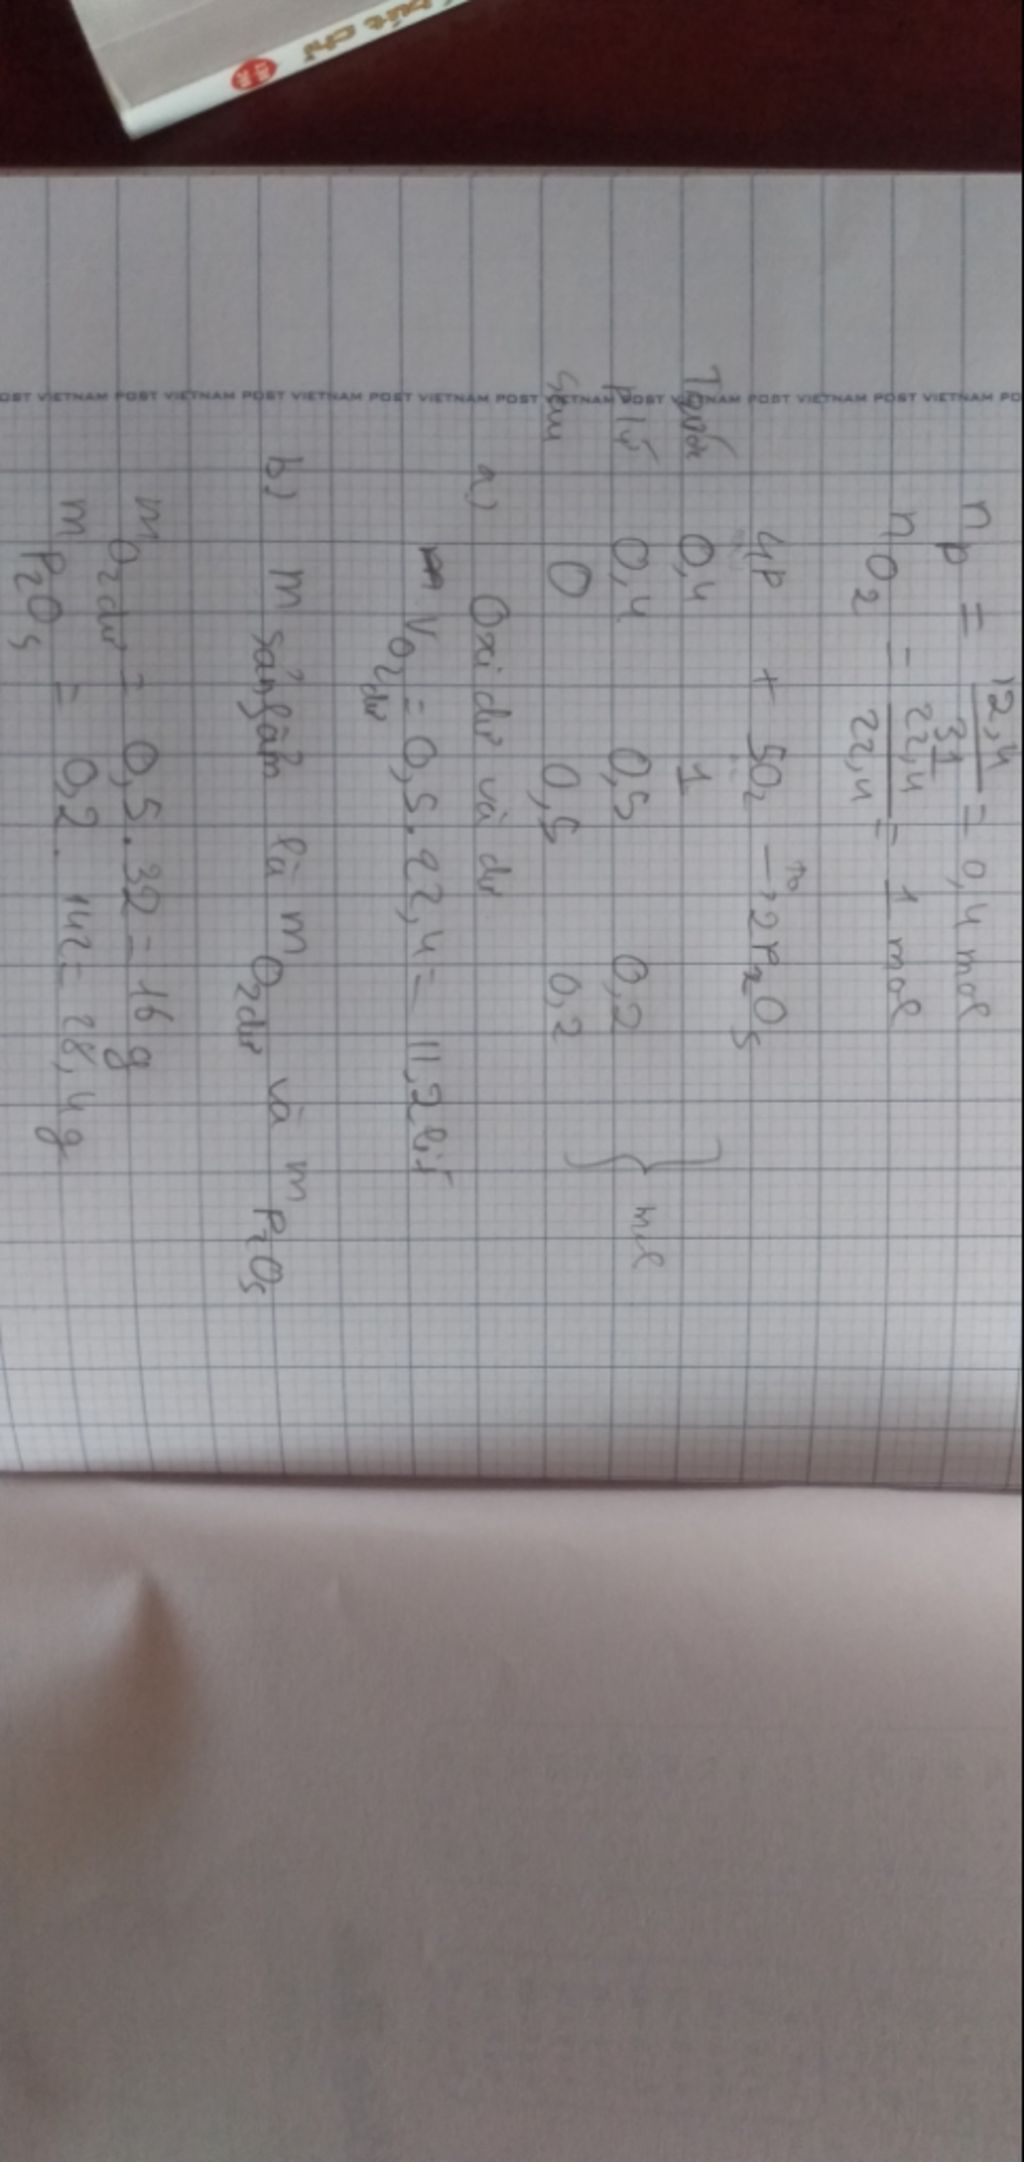 bút chì
POST VIETNAM POST VIETNAM POST VIETNAM POST VIETNAM POST VIETNAM POST VIETNAM POST VIETNAM POST VIETNAM PO
n P = 12,4 / 31 = 0,4 mol
n O2 = 22,4 / 22,4 = 1 mol
4P + 5O2 –t°→ 2P2O5
Trước 0,4 1
P/ứ 0,4 0,5 0,2 } mol
Sau 0 0,5 0,2
a) Oxi dư và dư
V O2 dư = 0,5.22,4 = 11,2 lít
b) m sản fẩm là m O2 dư và m P2O5
m O2 dư = 0,5.32 = 16 g
m P2O5 = 0,2.142 = 28,4 g